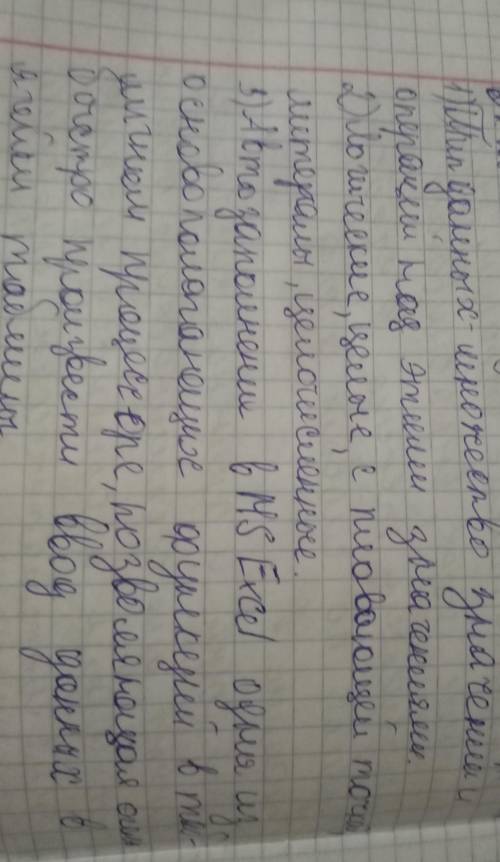 1) Тип данных - множество значений и
операции над этими значениями.
2) Логические, целые, с пловающей точ
литералы, целочисленные.
3) Автозаполнении в MS Excel одна из
основополагающие функкций в таб-
личном процессоре, позволяющая
быстро произвести ввод данных в
ячейки таблицы